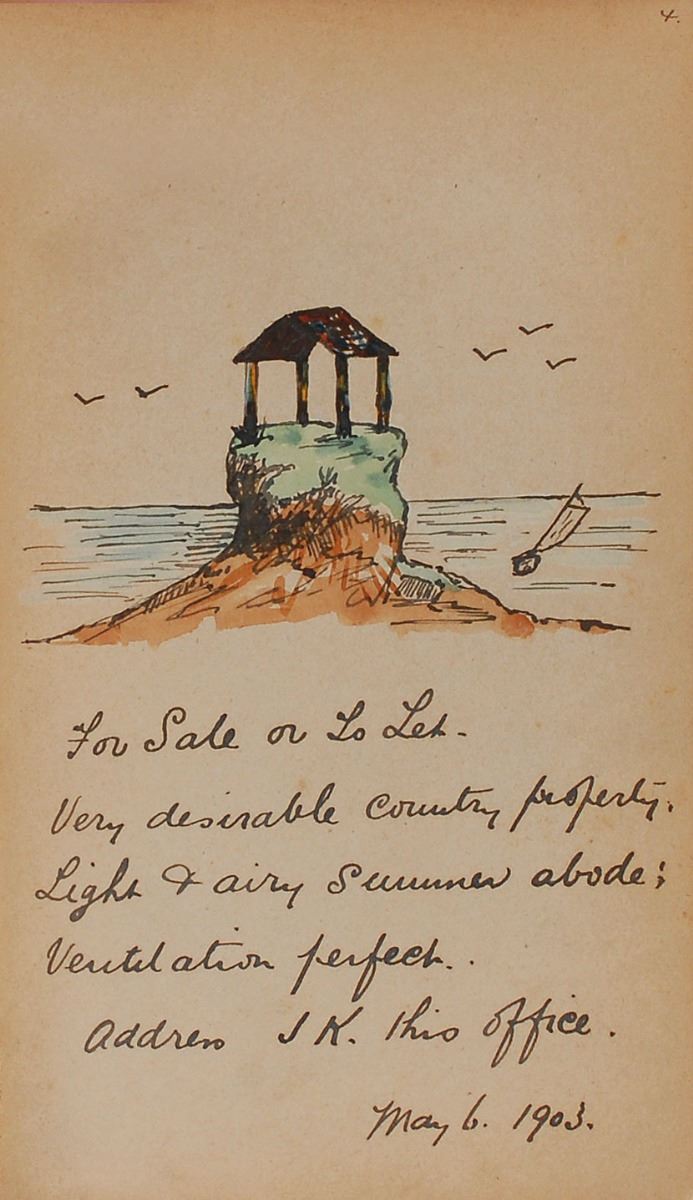 4.
For Sale or To Let-
Very desirable country property.
Light & airy Summer abode;
Ventilation perfect..
Address J K. this office.
May 6. 1903.